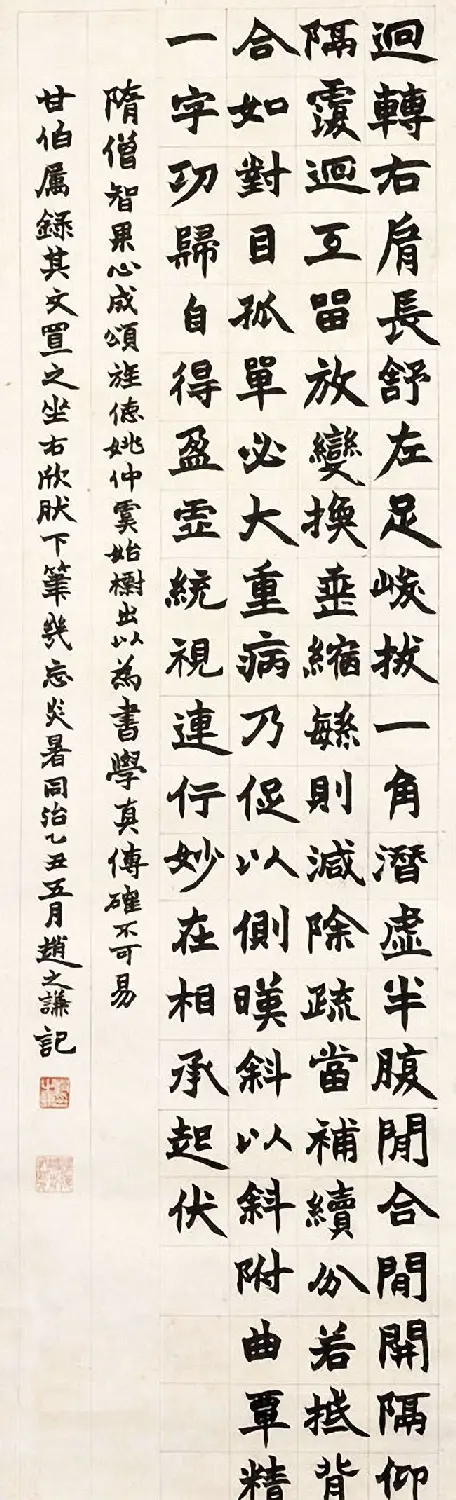 迴轉右肩長舒左足峻拔一角潛虛半腹間合間開隔仰
隔覆迴互留放變換垂縮繇則減除疏當補續分若抵背
合如對目孤單必大重病乃促以側映斜以斜附曲覃精
一字功歸自得盈虛統視連行妙在相承起伏
隋僧智果心成頌旌德姚仲虞始櫥出以為書學真傳確不可易
甘伯屬錄其文置之坐右欣肰下筆幾忘炎暑同治乙丑五月趙之謙記